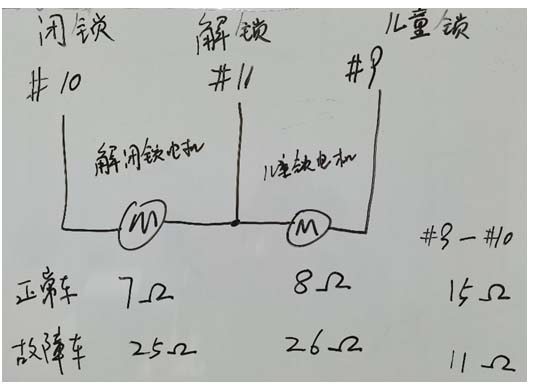 闭锁 解锁 儿童锁
#10 #11 #9
解闭锁电机 儿童锁电机
M M
#9-#10
正常车 7Ω 8Ω 15Ω
故障车 25Ω 26Ω 11Ω